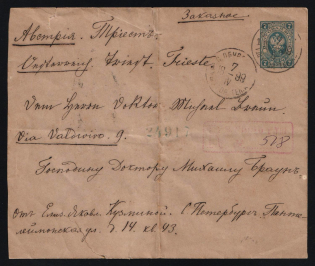 Заказное.
Австрія. Тріестъ.
Oesterreich. Triest. Trieste
Dem Herrn Doktor Michael Braun.
Via Valdirivo. 9.
24917
528
Господину Доктору Михаилу Браунъ
Отъ Елис. Яковл. Кузминой. С. Петербургъ Панте
леймонская ул. д. 14. кв. 43.